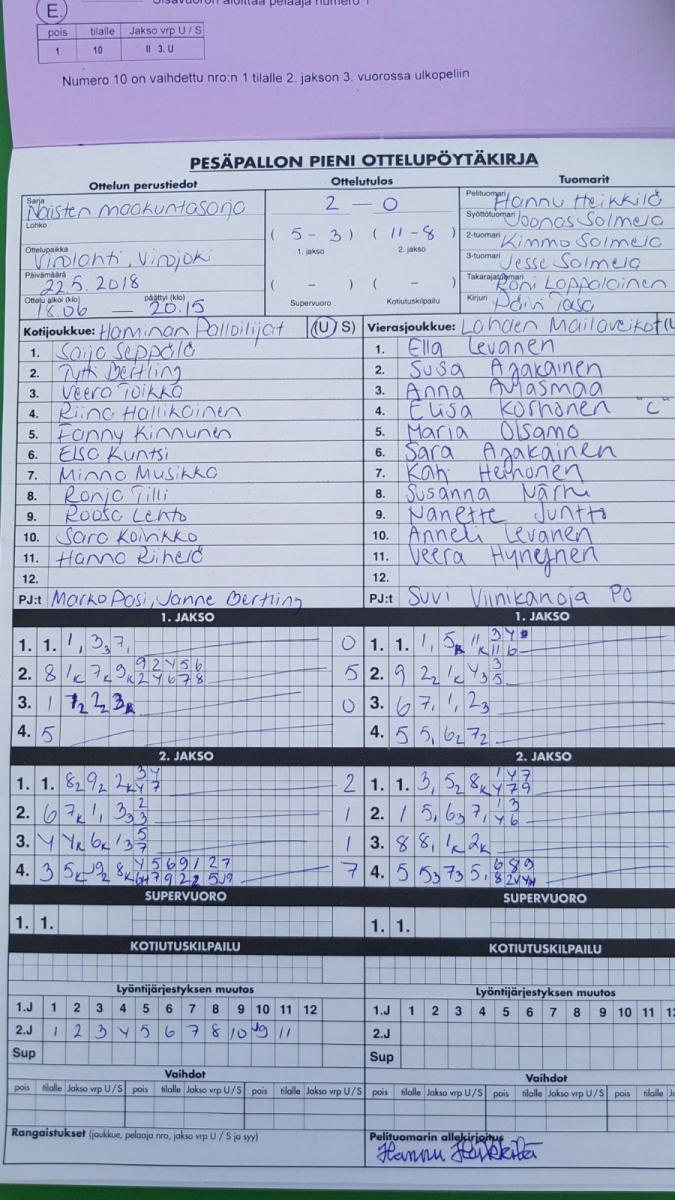 E.
pois tilalle Jakso vrp U / S
1 10 II 3. U
Numero 10 on vaihdettu nro:n 1 tilalle 2. jakson 3. vuorossa ulkopeliin
PESÄPALLON PIENI OTTELUPÖYTÄKIRJA
Ottelun perustiedot
Sarja Naisten maakuntasarja
Lohko
Ottelupaikka Virolahti, Virojoki
Päivämäärä 22.5.2018
Ottelu alkoi (klo) 18.06 — päättyi (klo) 20.15
Ottelutulos
2 – 0
( 5 – 3 ) ( 11 – 8 )
1. jakso 2. jakso
( – ) ( – )
Supervuoro Kotiutuskilpailu
Tuomarit
Pelituomari Hannu Heikkilä
Syöttötuomari Joonas Salmela
2-tuomari Kimmo Salmela
3-tuomari Jesse Salmela
Takarajatuomari Roni Loppalainen
Kirjuri Päivi
Kotijoukkue: Haminan Palloilijat (U S)
1. Saija Seppälä
2. Tytti Bertling
3. Veera Toikka
4. Riina Hallikainen
5. Fanny Kinnunen
6. Elsa Kuntsi
7. Minna Musikka
8. Ronja Tilli
9. Roosa Lehto
10. Sara Koivikko
11. Hanna Riihelä
12.
PJ:t Marko Pasi, Janne Bertling
Vierasjoukkue: Lahden Mailaveikot (U
1. Ella Levanen
2. Susa Agakainen
3. Anna
4. Elisa Korhonen "C"
5. Maria Olsamo
6. Sara Agakainen
7. Kati Heinonen
8. Susanna Närhi
9. Nanette Juntto
10. Anneli Levanen
11. Veera Hyneynen
12.
PJ:t Suvi Viinikanoja PO
1. JAKSO
1. 1. 1, 33 7, 0
2. 8 1K 7K 9K 9 2 4 5 6 5
2 4 6 7 8
3. 1 0
4. 5
1. JAKSO
1. 1. 1, 5
2. 9 22 1K 43 3
5
3. 6 7, 1, 23
4. 5 5, 62 72
2. JAKSO
1. 1. 82 92 2K 3 4 2
4 7
2. 6 7K 1, 33 2 1
3
3. 4 4K 6K 13 5 1
7
4. 3 7
2. JAKSO
1. 1. 3, 52 8K 1 4 7
4 7 9
2. 1 5, 63 7, 1 3
4 6
3. 8 8, 1K 2K
4. 5 53 73 5, 6 8 9
SUPERVUORO
1. 1.
SUPERVUORO
1. 1.
KOTIUTUSKILPAILU
KOTIUTUSKILPAILU
Lyöntijärjestyksen muutos
1.J 1 2 3 4 5 6 7 8 9 10 11 12
2.J 1 2 3 4 5 6 7 8 10 9 11
Sup
Lyöntijärjestyksen muutos
1.J 1 2 3 4 5 6 7 8 9 10 11 12
2.J
Sup
Vaihdot
pois tilalle Jakso vrp U / S pois tilalle Jakso vrp U / S pois tilalle Jakso vrp U / S
Vaihdot
pois tilalle Jakso vrp U / S pois tilalle Jakso vrp U / S pois tilalle
Rangaistukset (joukkue, pelaaja nro, jakso vrp U / S ja syy)
Pelituomarin allekirjoitus
Hannu Heikkilä